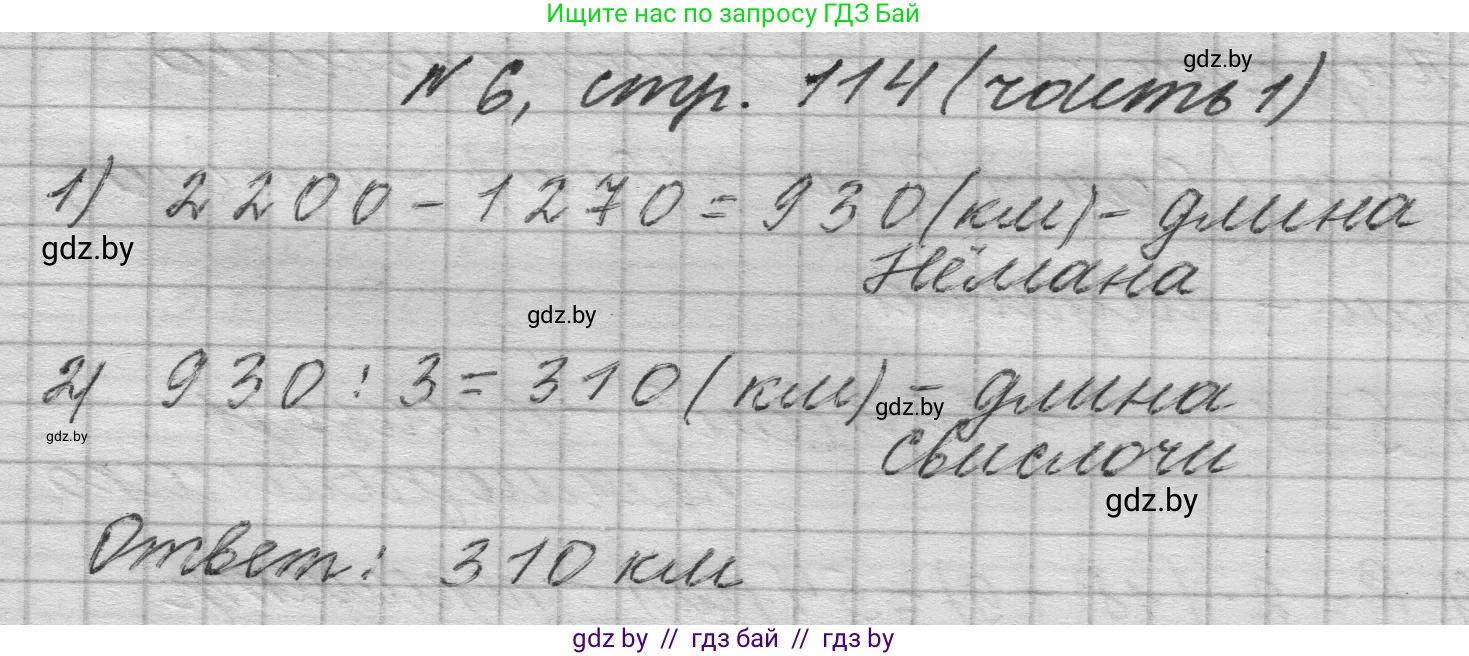 Ищите нас по запросу ГДЗ Бай
gdz.by
№ 6, стр. 114 (часть 1)
1) 2200 - 1270 = 930 (км) - длина
gdz.by
Нёмана
gdz.by
2) 930 : 3 = 310 (км) - длина
gdz.by
gdz.by
Свислочи
gdz.by
Ответ: 310 км
gdz by // гдз бай // гдз by